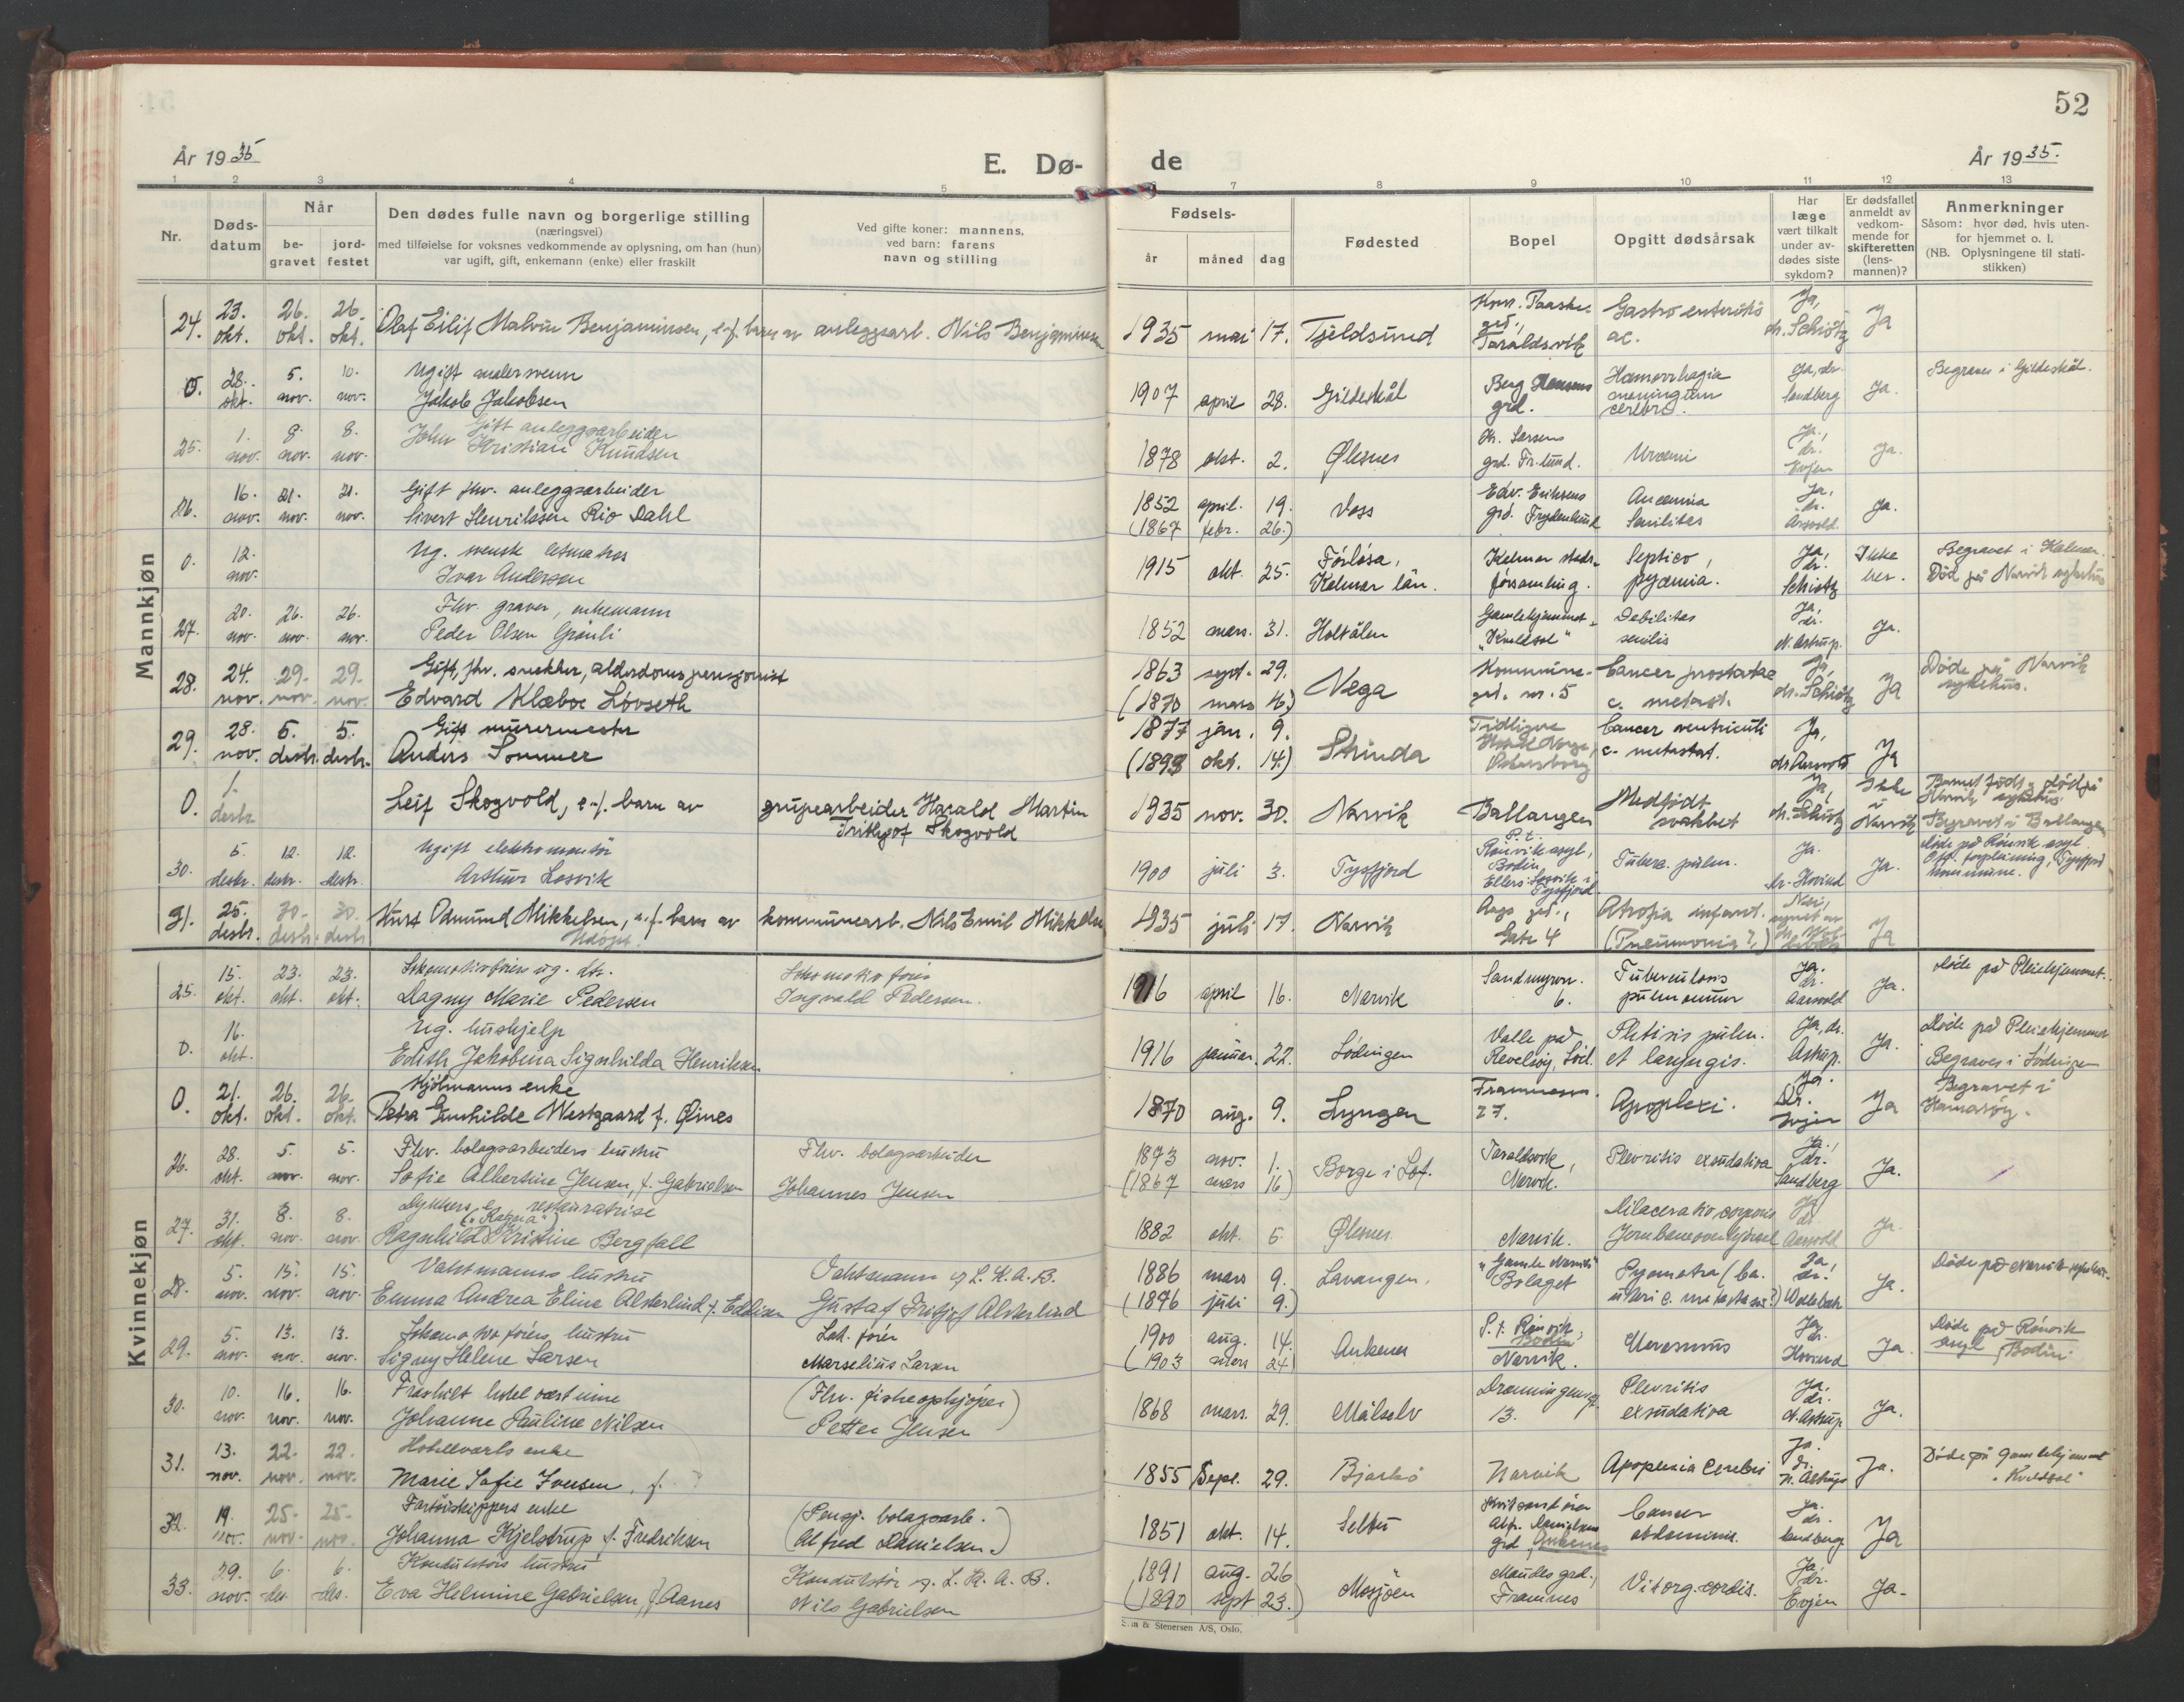 52
År 1935
E. Dø-
de
År 1935.
1 2 3 4 5 6 7 8 9 10 11 12 13
Nr.
Døds-
datum
Når
be-
gravet
jord-
festet
Den dødes fulle navn og borgerlige stilling
(næringsvei)
med tilføielse for voksnes vedkommende av oplysning, om han (hun)
var ugift, gift, enkemann (enke) eller fraskilt
Ved gifte koner: mannens,
ved barn: farens
navn og stilling
Fødsels-
år måned dag
Fødested
Bopel
Opgitt dødsårsak
Har
læge
vært tilkalt
under av-
dødes siste
sykdom?
Er dødsfallet
anmeldt av
vedkom-
mende for
skifteretten
(lens-
mannen)?
Anmerkninger
Såsom: hvor død, hvis uten-
for hjemmet o. l.
(NB. Oplysningene til stati-
stikken)
Mannkjøn
24. 23. okt. 26. okt. 26. okt. Olaf Eilif Malvin Benjaminsen, e.f. barn av anleggsarb. Nils Benjaminsen 1935 mai 17. Tjeldsund Taraldsvik Gastro enteritis ac. Ja, dr. Schiøtz Ja
0. 28. okt. 5. nov. 10. nov. Ugift malersvenn
Jakob Jakobsen 1907 april 28. Gildeskål Berg Hansens grd. Hæmorrhagia meningum cerebri. Ja, dr. Sandberg Ja. Begraves i Gildeskål.
25. 1. nov. 8. nov. 8. nov. Gift anleggsarbeider
John Kristian Knudsen 1878 okt. 2. Øksnes Kr. Larsens grd. Fr.lund. Uræmi Ja, dr. Evjen Ja.
26. 16. nov. 21. nov. 21. nov. Gift fhv. anleggsarbeider
Sivert Henrikssen Rio Dahl 1852 april. 19. (1867 febr. 26.) Voss Edv. Eriksens grd. Frydenlund Anæmia Senilitas Ja, dr. Aarvold Ja.
0. 12. nov. Ug. svensk letmatros
Ivar Andersson 1915 okt. 25. Förlösa, Kalmar län. Kalmar stads- församling. Septico, pyæmia. Ja, dr. Schiøtz Ikke her. Begravet i Kalmar. Død på Narvik sykehus
27. 20. nov. 26. nov. 26. nov. Fhv. graver, enkemann
Peder Olsen Grønli 1852 mars. 31. Holtålen Gamlehjemmet „Kveldsol“ Debilitas senilis Ja, dr. N. Astrup. Ja.
28. 24. nov. 29. nov. 29. nov. Gift, fhv. snekker, alderdomspensjonist
Edvard Klæboe Løvseth 1863 sept. 29. (1870 mars 16.) Vega Kommune- grd. nr. 5 Cancer prostatae c. metast. Ja, dr. Schiøtz Ja Døde på Narvik sykehus.
29. 28. nov. 5. desbr. 5. desbr. Gift murermester
Anders Sommer 1877 jan. 9. (1893 okt. 14.) Strinda Cancer ventriculi c. metastat. Ja, dr. Aarvold Ja
0. 1. desbr Leif Skogvold, e.f. barn av grupearbeider Harald Martin
Frithjof Skogvold 1935 nov. 30. Narvik Ballangen Medfødt svakhet Ja, dr. Schiøtz Ikke i Narvik Barnet født og død på Narvik sykehus Begravet i Ballangen
30. 5. desbr. 12. desbr. 12. desbr. Ugift elektromontør
Arthur Losvik 1900 juli 3. Tysfjord P.t. Rønvik asyl, Bodin Ellers: Losvik i Tysfjord Tuberc. pulm. Ja. dr. Hovind Ja. Døde på Rønvik asyl. Off. forpleining, Tysfjord kommune.
31. 25. desbr. 30. desbr. 30. desbr Kurt Odmund Mikkelsen, e.f. barn av kommunearb. Nils Emil Mikkelsen
Udøpt. 1935 juli 17. Narvik Gate 4 Atrofia infant. (Pneumonia?) Nei, Ja
Kvinnekjøn
25. 15. okt. 23. okt. 23. okt. Lokomotivførers ug. dtr.
Dagny Marie Pedersen Lokomotivfører
Ingvald Pedersen. 1916 april 16. Narvik Sandmyrvn. 6. Tuberculosis pulmonum Ja. dr. Aarvold Ja. Døde på Pleiehjemmet.
0. 16. okt. Ug. hushjelp
Edith Jakobina Signhilda Henriksen 1916 januar. 22. Lødingen Valle på Revelsøy, Lød. Phtisis pulm. et laryngis. Ja, dr. Astrup. Ja. Døde på Pleiehjemmet Begraves i Lødingen
0. 21. okt. 26. okt. 26. okt. Skjølmanns enke
Petra Gunhilde Westgaard f. Ørnes 1870 aug. 9. Lyngen 27. Apoplexi. Ja. Dr. Evjen Ja Begravet i Hamarøy.
26. 28. okt. 5. nov. 5. nov. Fhv. bolagsarbeiders hustru
Sofie Albertine Jensen, f. Gabrielsen Fhv. bolagsarbeider
Johannes Jensen 1873 nov. 1. (1867 mars 16) Borge i Lof. Taraldsvik, Narvik. Plevritis exsudativa Ja, dr. Sandberg Ja.
27. 31. okt. 8. nov. 8. nov. restauratrise
(„Ragna“)
Ragnhild Kristine Bergfall 1882 okt. 5. Øksnes Narvik. Dilaceratio corporis Jernbaneoverkjørsel Ja dr. Aarvold Ja.
28. 5. nov. 15. nov. 15. nov. Vaktmanns hustru
Emma Andrea Eline Alsterlind f. Ediksen Vaktmann v. L. K. A. B.
Gustaf Fritjof Alsterlind 1886 mars 9. (1876 juli 9.) Lavangen. „Gamle Narvik“ Bolaget Pyometra (Ca. uteri c. metastasis?) Ja, dr. Wollebæk Ja. Døde på Narvik sykehus.
29. 5. nov. 13. nov. 13. nov. Lokomotivførers hustru
Signy Helene Larsen Lok. fører
Marselius Larsen 1900 aug. 14. (1903 mars 24) Ankenes P.t. Rønvik, Bodin Narvik. Ja, dr. Hovind Ja. Døde på Rønvik asyl, Bodin.
30. 10. nov. 16. nov. 16. nov. Fraskilt hotelvertinne
Johanne Pauline Nilsen (Fhv. fiskeopkjøper)
Petter Jensen 1868 mars. 29. Målselv Dronningensgt. 13. Plevritis exsudativa Ja. dr. N. Astrup Ja.
31. 13. nov. 22. nov. 22. nov. Hotellverts enke
Marie Sofie Iversen, f. ? 1855 Sept. 29. Bjarkö Narvik Apoplexia Cerebri Ja. dr. N. Astrup Ja. Døde på Gamlehjemmet „Kveldsol“
32. 19. nov. 25. nov. 25. nov. Fartøiskippers enke
Johanna Kjelstrup f. Fredriksen (Pensj. bolagsarb.
Alfred Danielsen.) 1851 okt. 14. Selbu Alfr. Danielsens grd, Ankenes Cancer abdominis. Ja. dr. Sandberg Ja
33. 29. nov. 6. des. 6. des. Konduktørs hustru
Eva Helmine Gabrielsen, f. Aanes Konduktør v. L. K. A. B.
Nils Gabrielsen 1891 aug. 26 (1890 sept 23.) Mosjøen Maudes grd., Framnes Vit. org. cordis. Ja, dr. Evjen Ja.
& Stenersen A/S, Oslo.